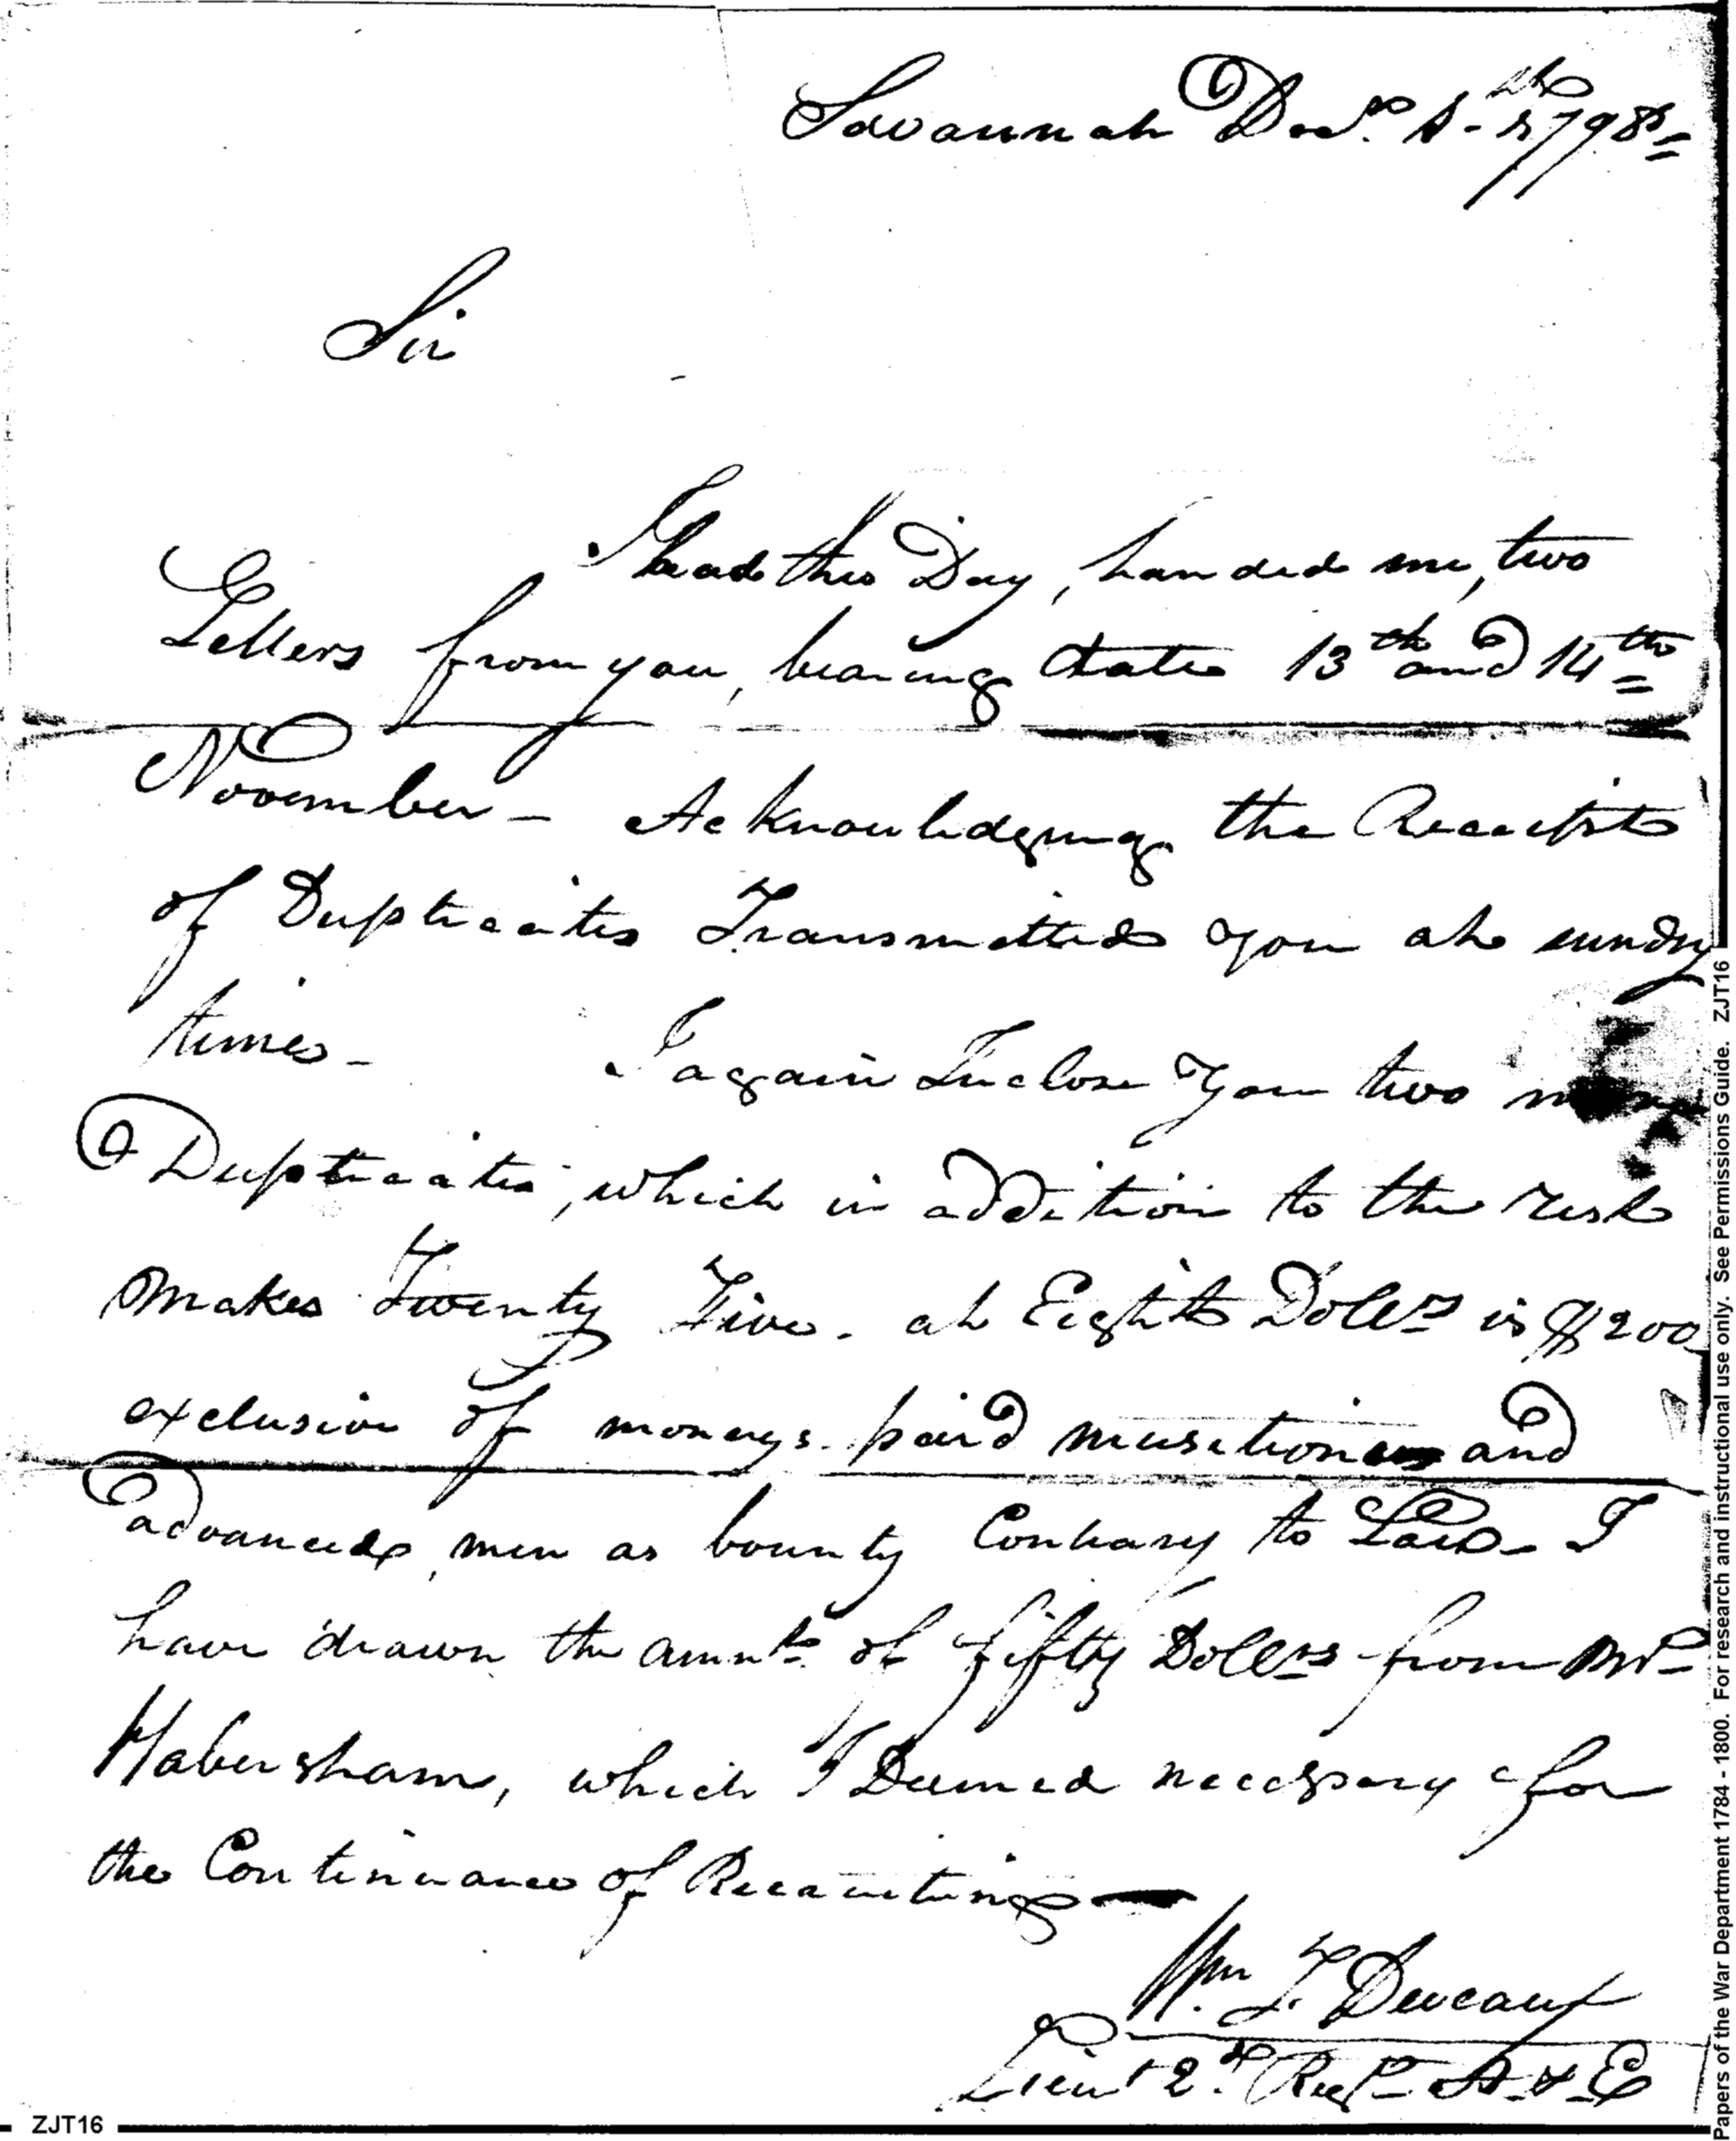 Savannah Decr. 5th 1798=
Sir
I had this Day, handed me, two
Letters from you, bearing date 13th and 14th=
November - Acknowledging the Receipt
of Duplicates Transmitted you at sundry
times - I again Inclose you two more
Duplicates, which in addition to the rest
makes Twenty Five. at Eight Dollrs is $200
exclusive of moneys paid and
advanced, men as bounty Contrary to Law - I
have drawn the amnt. of fifty Dollrs from Mr
Habersham, which I Deemed necessary for
the Continuance of Recruiting —
Wm. F. Deveaux
Lieut 2d. Regt A & E
ZJT16
Papers of the War Department 1784 - 1800. For research and instructional use only. See Permissions Guide. ZJT16